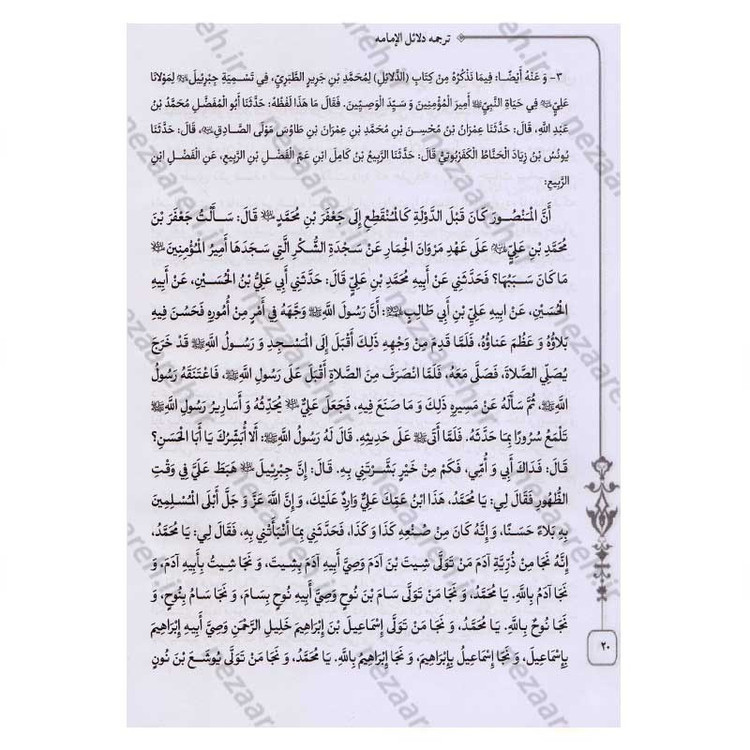 ترجمه دلائل الإمامه
۳- وَ عَنْهُ أَيْضًا: فِيمَا نَذْكُرُهُ مِنْ كِتَابِ (الدَّلَائِلِ) لِمُحَمَّدِ بْنِ جَرِيرٍ الطَّبَرِيِّ، فِي تَسْمِيَةِ جِبْرَئِيلَ لِمَوْلَانَا
عَلِيٍّ فِي حَيَاةِ النَّبِيِّ أَمِيرَ الْمُؤْمِنِينَ وَ سَيِّدَ الْوَصِيِّينَ. فَقَالَ مَا هَذَا لَفْظُهُ: حَدَّثَنَا أَبُو الْمُفَضَّلِ مُحَمَّدُ بْنُ
عَبْدِ اللَّهِ، قَالَ: حَدَّثَنَا عِمْرَانُ بْنُ مُحْسِنِ بْنِ مُحَمَّدِ بْنِ عِمْرَانَ بْنِ طَاوُسٍ مَوْلَى الصَّادِقِ، قَالَ: حَدَّثَنَا
يُونُسُ بْنُ زِيَادٍ الْحَنَّاطُ الْكَفَرْبُوتِيُّ قَالَ: حَدَّثَنَا الرَّبِيعُ بْنُ كَامِلٍ ابْنِ عَمِّ الْفَضْلِ بْنِ الرَّبِيعِ، عَنِ الْفَضْلِ ابْنِ
الرَّبِيعِ:
أَنَّ الْمَنْصُورَ كَانَ قَبْلَ الدَّوْلَةِ كَالْمُنْقَطِعِ إِلَى جَعْفَرِ بْنِ مُحَمَّدٍ قَالَ: سَأَلْتُ جَعْفَرَ بْنَ
مُحَمَّدِ بْنِ عَلِيٍّ عَلَى عَهْدِ مَرْوَانَ الْحِمَارِ عَنْ سَجْدَةِ الشُّكْرِ الَّتِي سَجَدَهَا أَمِيرُ الْمُؤْمِنِينَ
مَا كَانَ سَبَبُهَا؟ فَحَدَّثَنِي عَنْ أَبِيهِ مُحَمَّدِ بْنِ عَلِيٍّ قَالَ: حَدَّثَنِي أَبِي عَلِيُّ بْنُ الْحُسَيْنِ، عَنْ أَبِيهِ
الْحُسَيْنِ، عَنْ ابِيهِ عَلِيِّ بْنِ أَبِي طَالِبٍ: أَنَّ رَسُولَ اللَّهِ وَجَّهَهُ فِي أَمْرٍ مِنْ أُمُورِهِ فَحَسُنَ فِيهِ
بَلَاؤُهُ وَ عَظُمَ عَنَاؤُهُ، فَلَمَّا قَدِمَ مِنْ وَجْهِهِ ذَلِكَ أَقْبَلَ إِلَى الْمَسْجِدِ وَ رَسُولُ اللَّهِ قَدْ خَرَجَ
يُصَلِّي الصَّلَاةَ، فَصَلَّى مَعَهُ، فَلَمَّا انْصَرَفَ مِنَ الصَّلَاةِ أَقْبَلَ عَلَى رَسُولِ اللَّهِ، فَاعْتَنَقَهُ رَسُولُ
اللَّهِ، ثُمَّ سَأَلَهُ عَنْ مَسِيرِهِ ذَلِكَ وَ مَا صَنَعَ فِيهِ، فَجَعَلَ عَلِيٌّ يُحَدِّثُهُ وَ أَسَارِيرُ رَسُولِ اللَّهِ
تَلْمَعُ سُرُورًا بِمَا حَدَّثَهُ. فَلَمَّا أَتَى عَلَى حَدِيثِهِ. قَالَ لَهُ رَسُولُ اللَّهِ: أَلَا أُبَشِّرُكَ يَا أَبَا الْحَسَنِ؟
قَالَ: فِدَاكَ أَبِي وَ أُمِّي، فَكَمْ مِنْ خَيْرٍ بَشَّرْتَنِي بِهِ. قَالَ: إِنَّ جِبْرَئِيلَ هَبَطَ عَلَيَّ فِي وَقْتِ
الظُّهُورِ فَقَالَ لِي: يَا مُحَمَّدُ، هَذَا ابْنُ عَمِّكَ عَلِيٌّ وَارِدٌ عَلَيْكَ، وَ إِنَّ اللَّهَ عَزَّ وَ جَلَّ أَبْلَى الْمُسْلِمِينَ
بِهِ بَلَاءً حَسَنًا، وَ إِنَّهُ كَانَ مِنْ صُنْعِهِ كَذَا وَ كَذَا، فَحَدَّثَنِي بِمَا أَنْبَأْتَنِي بِهِ، فَقَالَ لِي: يَا مُحَمَّدُ،
إِنَّهُ نَجَا مِنْ ذُرِّيَّةِ آدَمَ مَنْ تَوَلَّى شِيثَ بْنَ آدَمَ وَصِيَّ أَبِيهِ آدَمَ بِشِيثَ، وَ نَجَا شِيثُ بِأَبِيهِ آدَمَ، وَ
نَجَا آدَمُ بِاللَّهِ. يَا مُحَمَّدُ، وَ نَجَا مَنْ تَوَلَّى سَامَ بْنَ نُوحٍ وَصِيَّ أَبِيهِ نُوحٍ بِسَامَ، وَ نَجَا سَامُ بِنُوحٍ، وَ
نَجَا نُوحٌ بِاللَّهِ. يَا مُحَمَّدُ، وَ نَجَا مَنْ تَوَلَّى إِسْمَاعِيلَ بْنَ إِبْرَاهِيمَ خَلِيلِ الرَّحْمَنِ وَصِيَّ أَبِيهِ إِبْرَاهِيمَ
بِإِسْمَاعِيلَ، وَ نَجَا إِسْمَاعِيلُ بِإِبْرَاهِيمَ، وَ نَجَا إِبْرَاهِيمُ بِاللَّهِ. يَا مُحَمَّدُ، وَ نَجَا مَنْ تَوَلَّى يُوشَعَ بْنَ نُونٍ
۲۰
nezaareh.ir